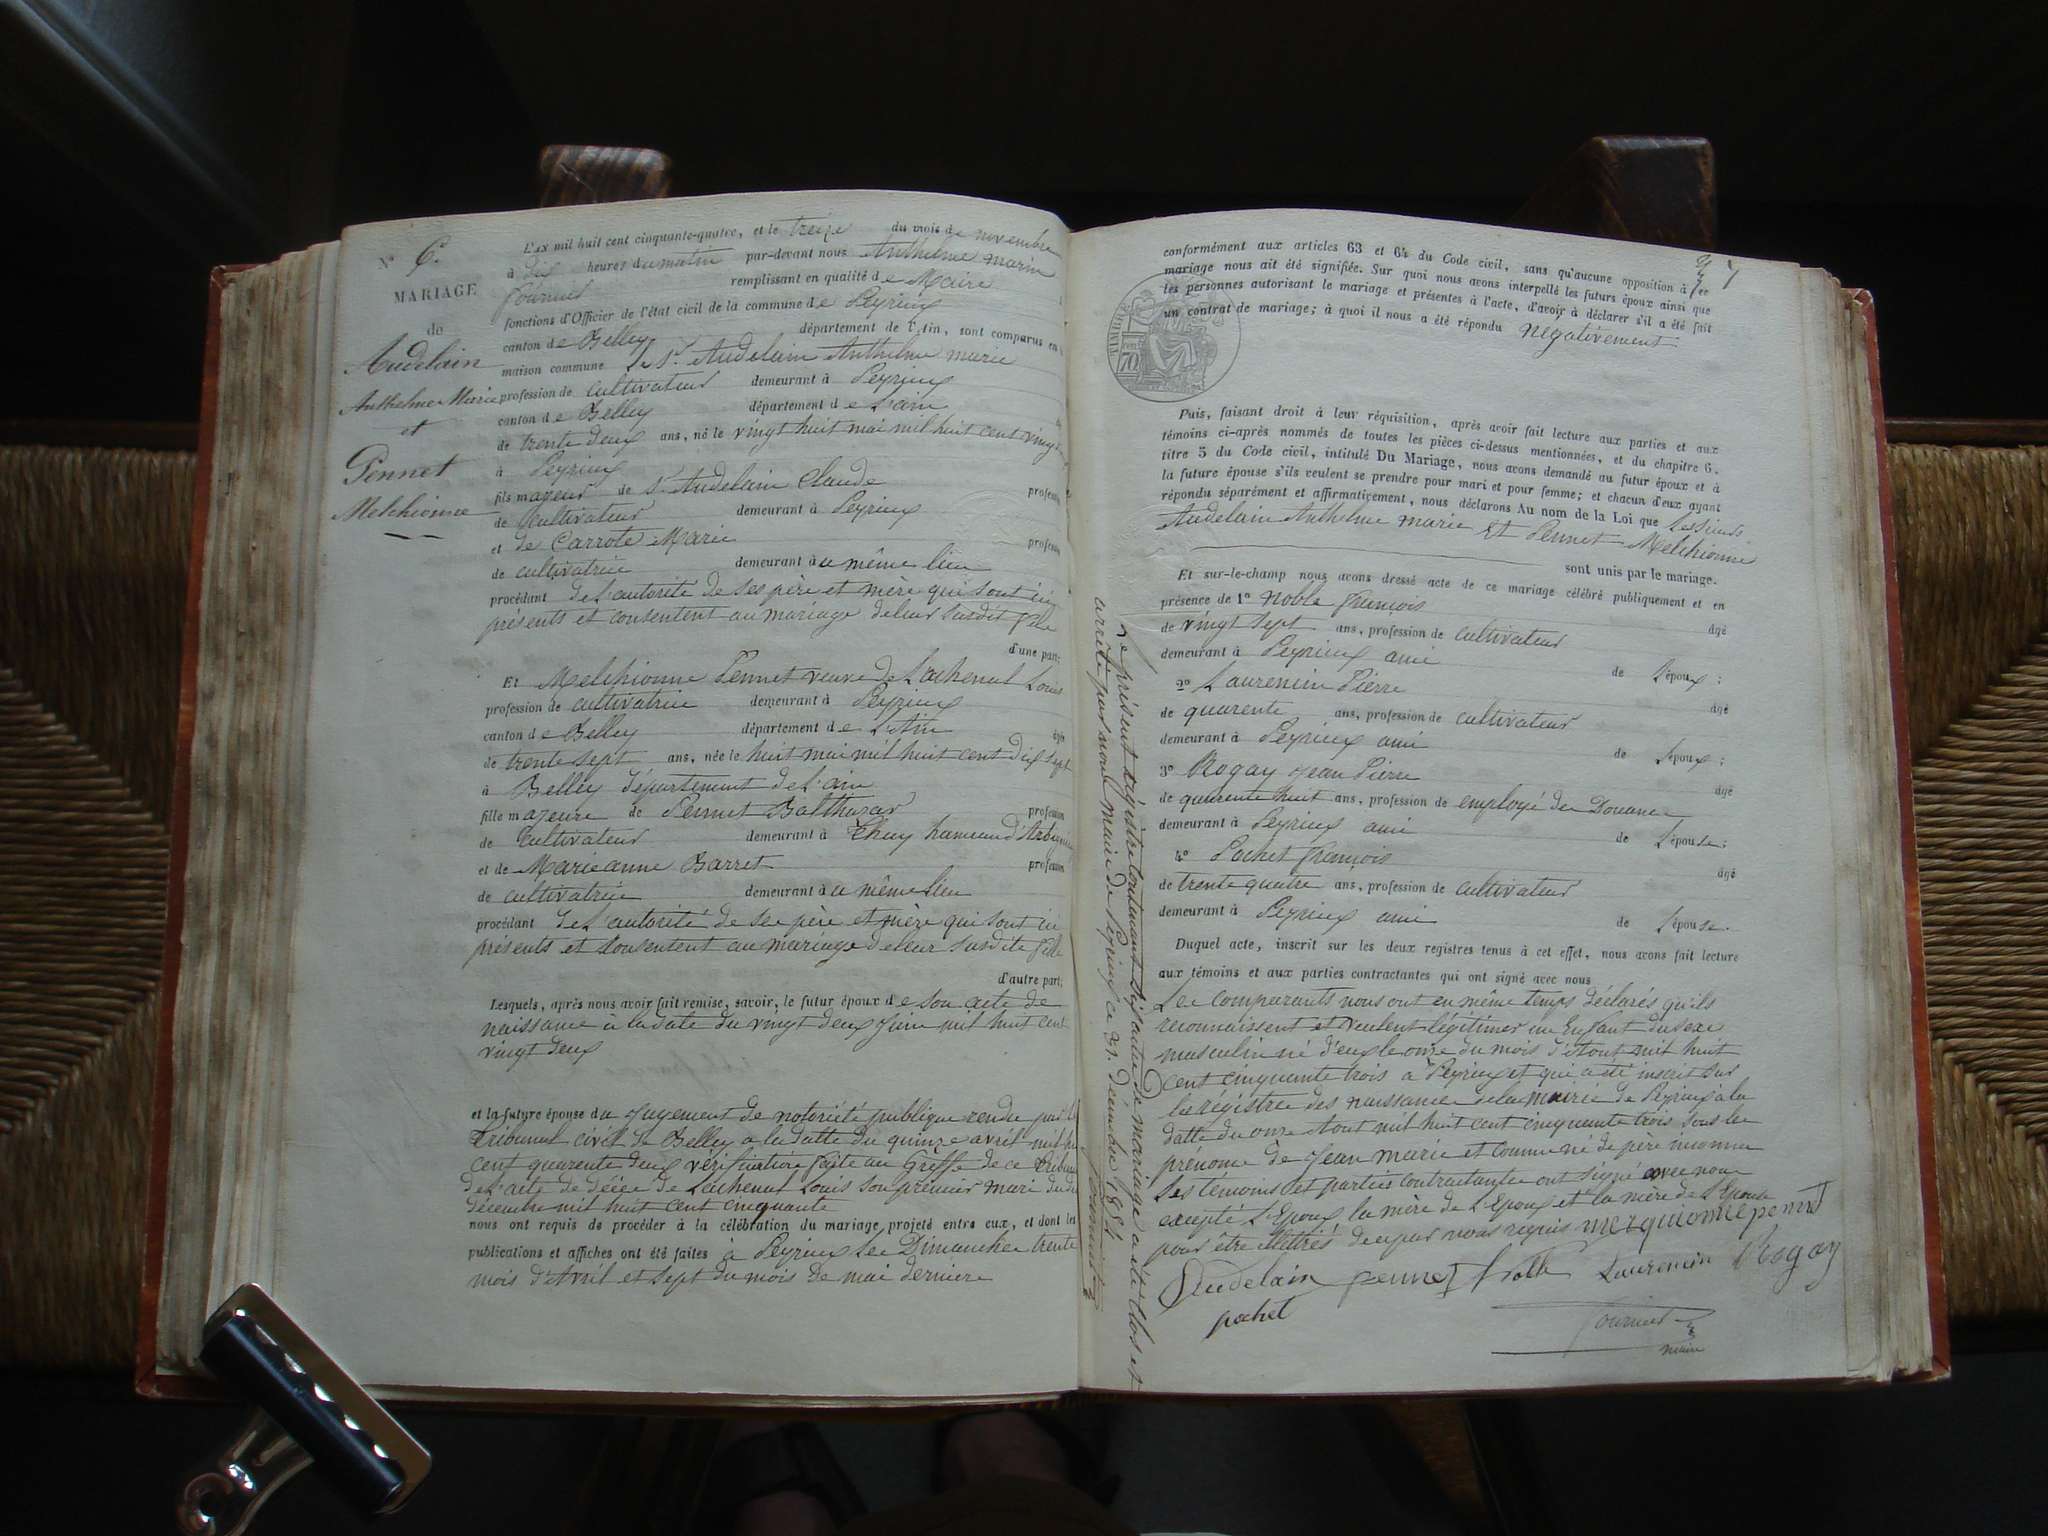 N° 6.
MARIAGE
de
Audelain
Anthelme Marie
et
Pennet
Melchionne
L'an mil huit cent cinquante-quatre, et le treize du mois de novembre
à dix heures du matin par-devant nous Anthelme marin
fournier remplissant en qualité de Maire
fonctions d'Officier de l'état civil de la commune de Peyrieux
canton de Belley département de l'Ain, sont comparus en
maison commune le Sr Audelain Anthelme marie
profession de cultivateur demeurant à Peyrieux
canton de Belley département de l'ain
de trente deux ans, né le vingt huit mai mil huit cent vingt
à Peyrieux
fils majeur de Sr Audelain Claude profession
de cultivateur demeurant à Peyrieux
et de Carrote Marie profession
de cultivatrice demeurant à ce même lieu
procédant de l'autorité de ses père et mère qui sont ici
présents et consentent au mariage de leur susdit fils
d'une part;
Et Melchionne Pennet veuve de Lachenal Louis
profession de cultivatrice demeurant à Peyrieux
canton de Belley département de L'Ain âgée
de trente sept ans, née le huit mai mil huit cent dix sept
à Belley département de l'ain
fille majeure de Pennet Balthazar profession
de cultivateur demeurant à Thuy hameau d'Arbignieu
et de Marie anne Barret profession
de cultivatrice demeurant à ce même lieu
procédant de l'autorité de ses père et mère qui sont ici
présents et consentent au mariage de leur susdite fille
d'autre part;
Lesquels, après nous avoir fait remise, savoir, le futur époux de son acte de
naissance à la date du vingt deux Juin mil huit cent
vingt deux
et la future épouse du Jugement de notoriété publique rendu par le
tribunal civil de Belley a la datte du quinze avril mil
cent quarente deux vérification faite au Greffe de ce tribunal
de l'acte de décès de Lachenal Louis son premier mari du
décembre mil huit cent cinquante
nous ont requis de procéder à la célébration du mariage projeté entre eux, et dont les
publications et affiches ont été faites à Peyrieux les Dimanches trente
mois d'Avril et Sept du mois de mai derniers
Le présent régistre contenant six actes de mariage a été clos et
arreté par nous maire de Peyrieux ce 31 décembre 1854
fournier
7
TIMBRE
70
conformément aux articles 63 et 64 du Code civil, sans qu'aucune opposition à ce
mariage nous ait été signifiée. Sur quoi nous avons interpellé les futurs époux ainsi que
les personnes autorisant le mariage et présentes à l'acte, d'avoir à déclarer s'il a été fait
un contrat de mariage; à quoi il nous a été répondu negativement
Puis, faisant droit à leur réquisition, après avoir fait lecture aux parties et aux
témoins ci-après nommés de toutes les pièces ci-dessus mentionnées, et du chapitre 6,
titre 5 du Code civil, intitulé Du Mariage, nous avons demandé au futur époux et à
la future épouse s'ils veulent se prendre pour mari et pour femme; et chacun d'eux ayant
répondu séparément et affirmativement, nous déclarons Au nom de la Loi que Les sieurs
Audelain Anthelme marie et Pennet Melchionne
sont unis par le mariage.
Et sur-le-champ nous avons dressé acte de ce mariage célébré publiquement et en
présence de 1° Noble françois âgé
de vingt sept ans, profession de cultivateur
demeurant à Peyrieux ami de L'époux;
2° Laurencin Pierre âgé
de quarente ans, profession de cultivateur
demeurant à Peyrieux ami de L'époux;
3° Rogay jean Pierre âgé
de quarente huit ans, profession de employé des Douanes
demeurant à Peyrieux ami de L'épouse;
4° Pochet françois âgé
de trente quatre ans, profession de cultivateur
demeurant à Peyrieux ami de L'épouse.
Duquel acte, inscrit sur les deux registres tenus à cet effet, nous avons fait lecture
aux témoins et aux parties contractantes qui ont signé avec nous
Les comparants nous ont en même temps déclarés qu'ils
reconnaissent et veulent légitimer un Enfant du sexe
masculin né d'eux le onze du mois d'Aout mil huit
cent cinquante trois à Peyrieux et qui a été inscrit sur
les régistres des naissances de la mairie de Peyrieux à la
datte du onze Aout mil huit cent cinquante trois sous les
prénoms de Jean marie et comme né de père inconnu
Les témoins et parties contractantes ont signé avec nous
excepté L'Epoux la mère de L'Epoux et la mère de L'Epouse
pour être illettrés de ce par nous requis merquionnepennet
Audelain pennet Noble Laurencin Rogay
pochet
fournier
maire